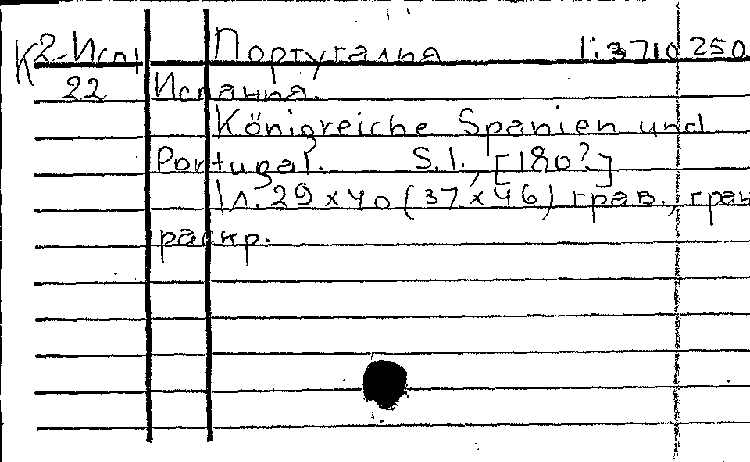 К 2-Исп Португалия 1:3710 250
22 Испания.
Königreiche Spanien und
Portugal. S.l., [180?]
1л. 29 x 40 (37 x 46) грав., гран
раскр.